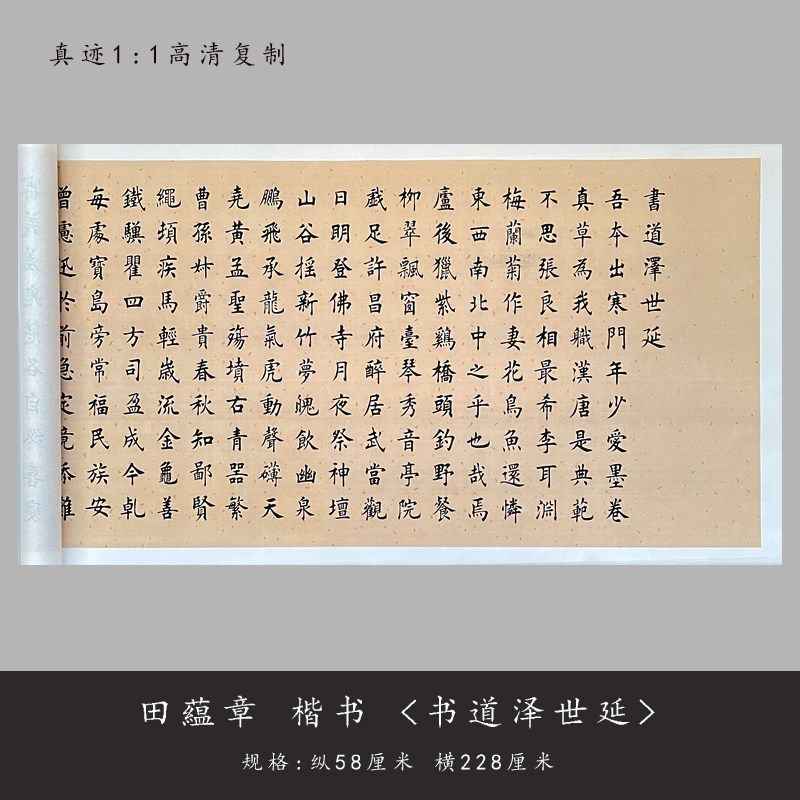 真迹1:1高清复制
書道澤世延
吾本出寒門年少愛墨卷
真草為我職漢唐是典範
不思張良相最希李耳淵
梅蘭菊作妻花鳥魚還憐
東西南北中之乎也哉焉
廬後獵紫鷄橋頭釣野餐
柳翠飄窗臺琴秀音亭院
戲足許昌府醉居武當觀
日明登佛寺月夜祭神壇
山谷摇新竹夢愧飲幽泉
鵬飛承龍氣虎動聲礴天
堯黃孟聖殤墳右青器繁
曹孫姊爵貴春秋知鄙賢
繩頊疾馬輕歳流金龜善
鐵驥瞿四方司盈成今乹
每處寶島旁常福民族安
於前
田蘊章 楷书 <书道泽世延>
规格:纵58厘米 横228厘米